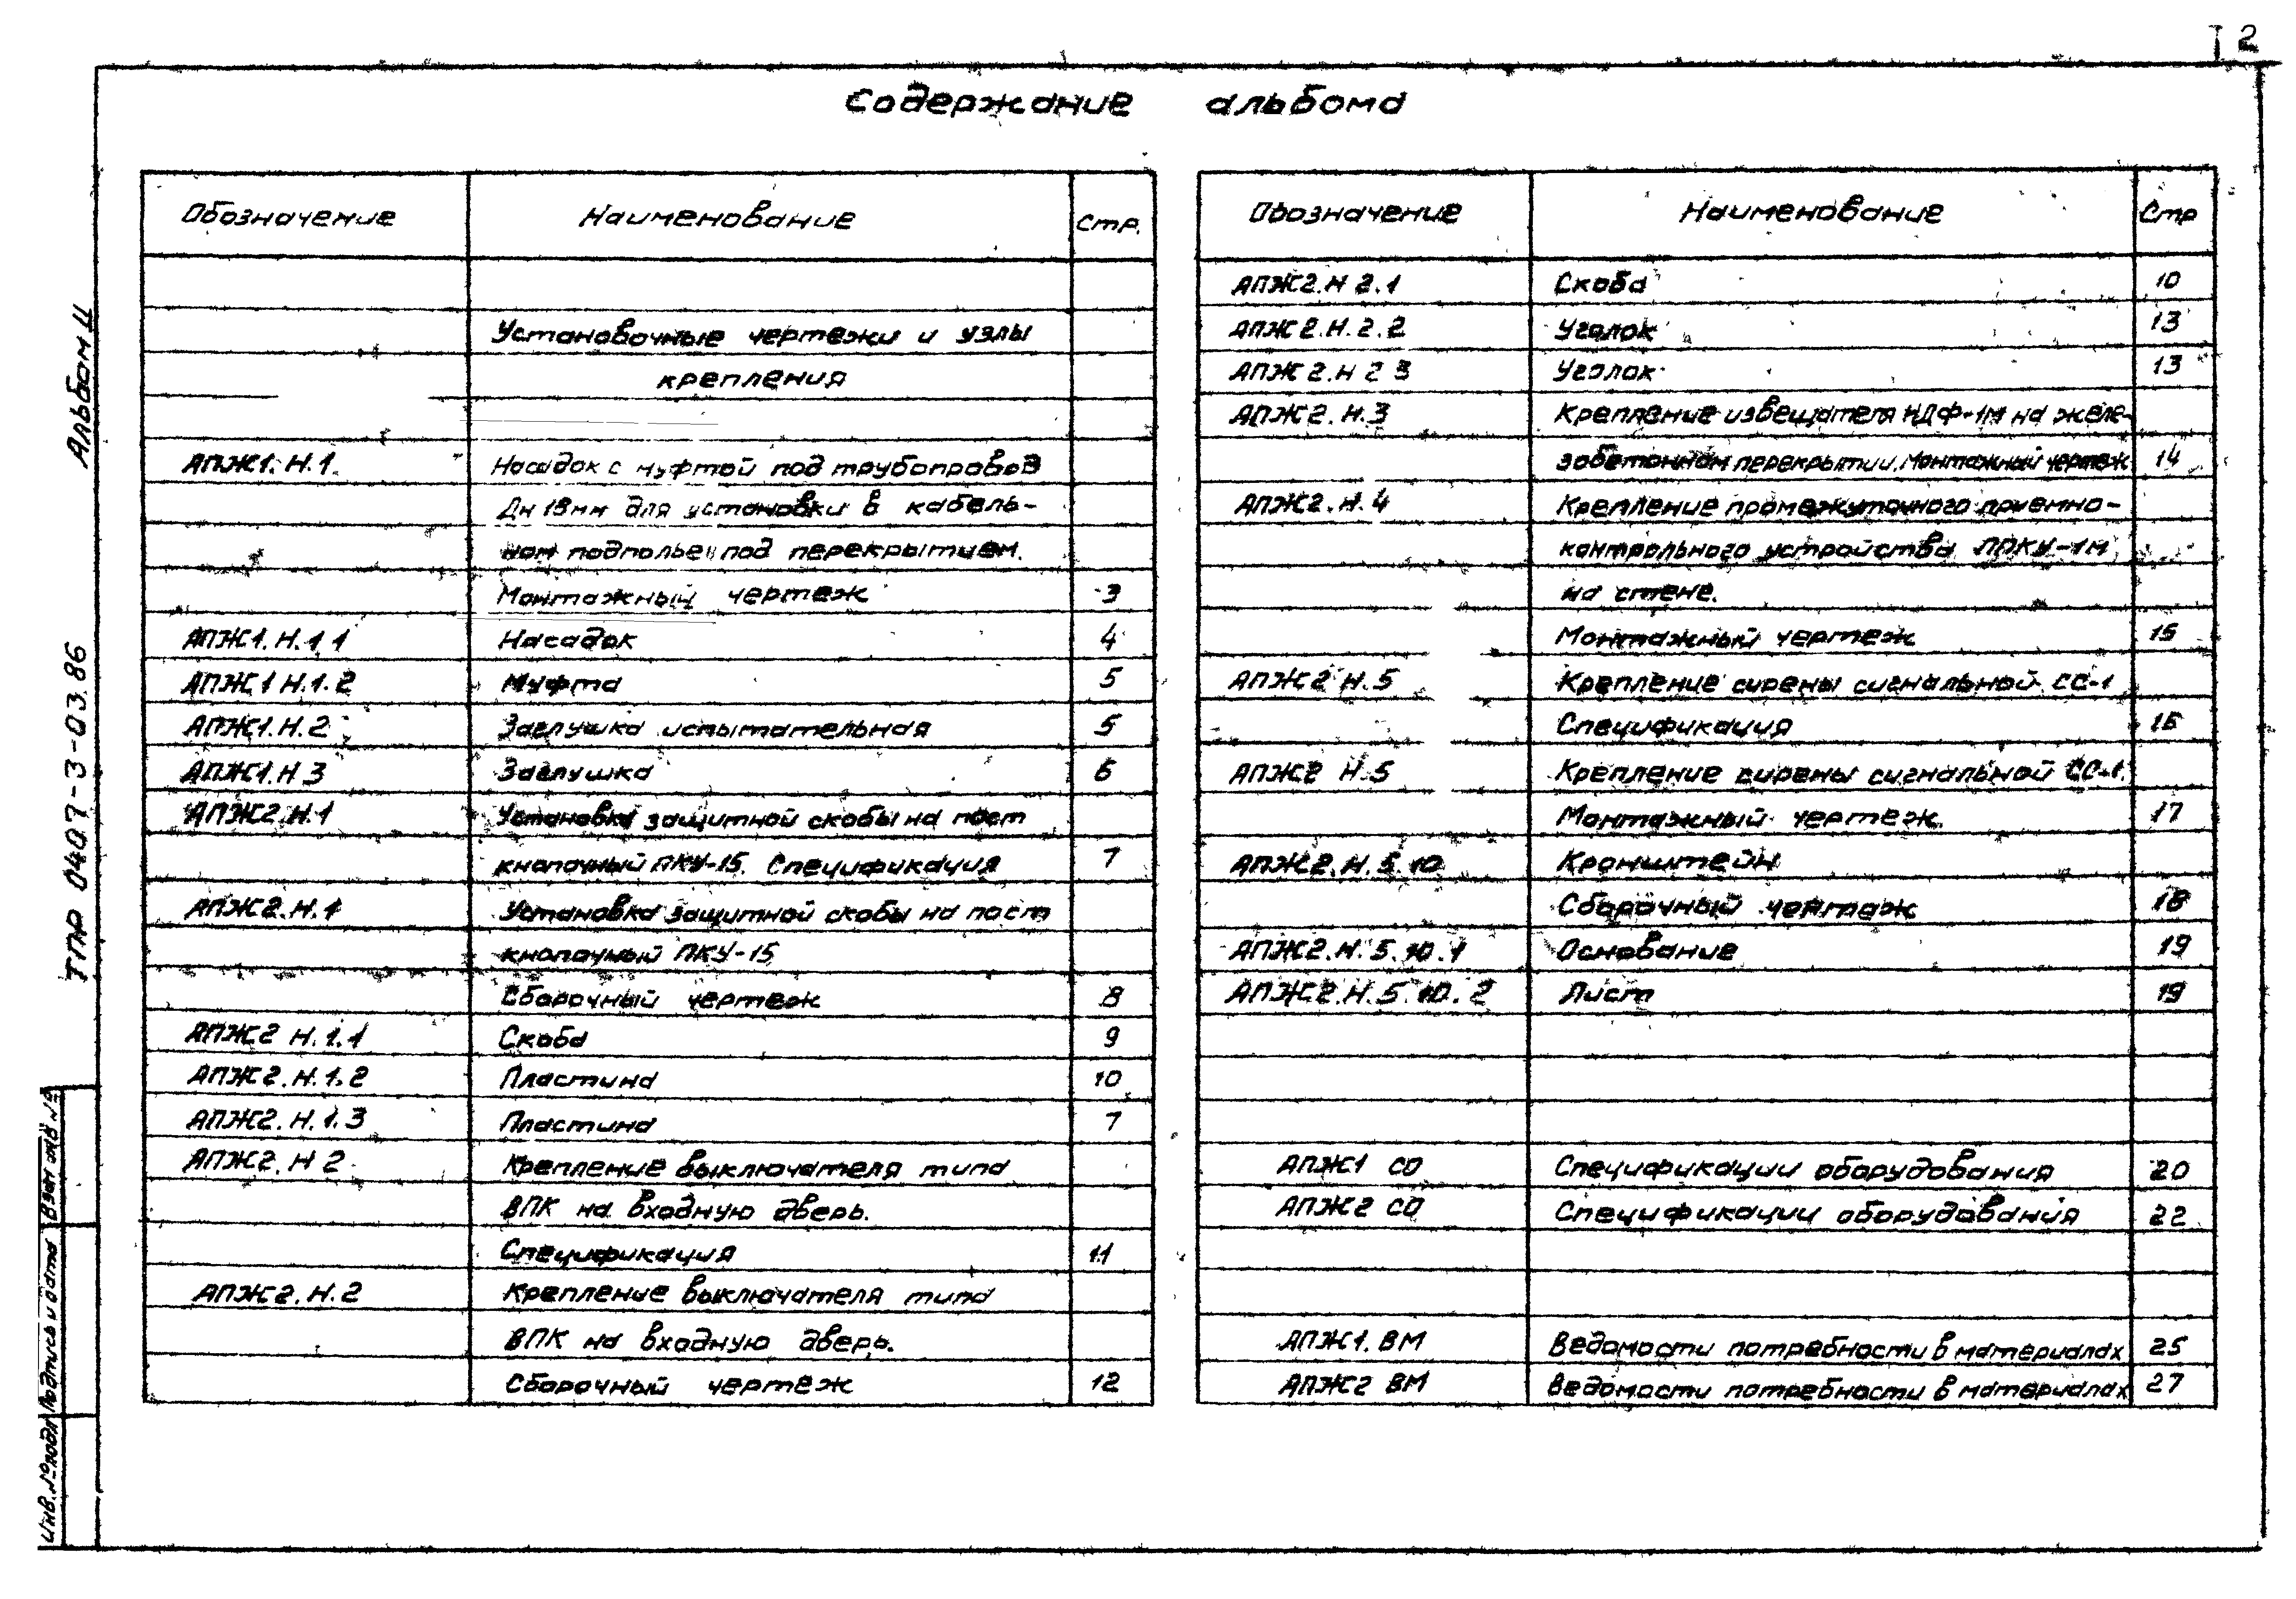 2
Содержание альбома
Обозначение Наименование Стр.
Установочные чертежи и узлы
крепления
АПЖ1.Н.1. Насадок с муфтой под трубопровод
Дн 18мм для установки в кабель-
ном подполье и под перекрытием.
Монтажный чертеж 3
АПЖ1.Н.1 1 Насадок 4
АПЖ1 Н.1.2 Муфта 5
АПЖ1.Н.2 Заглушка испытательная 5
АПЖ1.Н 3 Заглушка 6
АПЖ2.Н.1 Установка защитной скобы на пост
кнопочный ПКУ-15. Спецификация 7
АПЖ2.Н.1 Установка защитной скобы на пост
кнопочный ПКУ-15
Сборочный чертеж 8
АПЖ2 Н.1.1 Скоба 9
АПЖ2.Н.1.2 Пластина 10
АПЖ2.Н.1.3 Пластина 7
АПЖ2.Н 2 Крепление выключателя типа
ВПК на входную дверь.
Спецификация 11
АПЖ2.Н.2 Крепление выключателя типа
ВПК на входную дверь.
Сборочный чертеж 12
Обозначение Наименование Стр
АПЖ2.Н 2.1 Скоба 10
АПЖ2.Н.2.2 Уголок 13
АПЖ2.Н 2 3 Уголок 13
АПЖ2.Н.3 Крепление извещателя НДФ-1М на желе-
зобетонном перекрытии. Монтажный чертеж 14
АПЖ2.Н.4 Крепление промежуточного приемно-
контрольного устройства ППКУ-1М
на стене.
Монтажный чертеж 15
АПЖ2 Н.5 Крепление сирены сигнальной СС-1
Спецификация 16
АПЖ2 Н.5 Крепление сирены сигнальной СС-1.
Монтажный чертеж. 17
АПЖ2.Н.5.10 Кронштейн
Сборочный чертеж 18
АПЖ2.Н.5.10.1 Основание 19
АПЖ2.Н.5.10.2 Лист 19
АПЖ1 СО Спецификации оборудования 20
АПЖ2 СО Спецификации оборудования 22
АПЖ1.ВМ Ведомости потребности в материалах 25
АПЖ2 ВМ Ведомости потребности в материалах 27
ТПР 0407-3-03.86 Альбом II
Инв.№ подл Подпись и дата Взам инв №